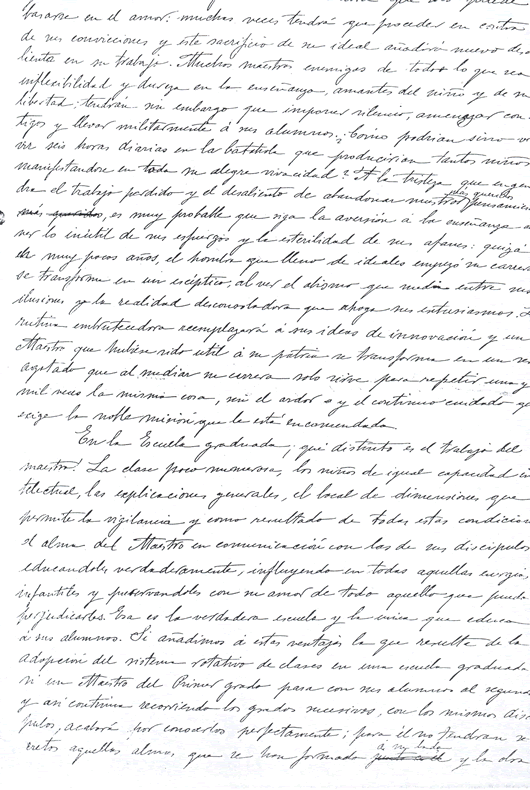 basarse en el amor: muchas veces tendrá que proceder en contra
de sus convicciones y este sacrificio de su ideal añadirá nuevo desa
liento en su trabajo. Muchos maestros enemigos de todo lo que sea
inflexibilidad y dureza en la enseñanza, amantes del niño y de su
libertad, tendrán sin embargo que imponer silencio, amenazar con
tigos y llevar militarmente á sus alumnos. ¿Cómo podrían sino vi
vir seis horas diarias en la batahola que producirían tantos niños
manifestándose en toda su alegre vivacidad? A la tristeza que engen
dra el trabajo perdido y el desaliento de abandonar nuestros más queridos pensamien
más queridos, es muy probable que siga la aversión á la enseñanza al
ver lo inútil de sus esfuerzos y la esterilidad de sus afanes: quizá
en muy pocos años, el hombre que lleno de ideales empezó su carrera
se transforma en un escéptico, al ver el abismo que media entre sus
ilusiones y la realidad desconsoladora que ahoga sus entusiasmos. La
rutina embrutecedora reemplazará á sus ideas de innovación y un
Maestro que hubiera sido útil á su patria se transforma en un ser
agotado que al mediar su carrera solo vive para repetir una y
mil veces la misma cosa, sin el ardor y el continuo cuidado que
exige la noble misión que le está encomendada
En la Escuela graduada, ¡qué distinto es el trabajo del
maestro! La clase poco numerosa, los niños de igual capacidad in
telectual, las explicaciones generales, el local de dimensiones que
permite la vigilancia y como resultado de todas estas condiciones
el alma del Maestro en comunicación con las de sus discípulos
educándoles verdaderamente, influyendo en todas aquellas energías
infantiles y preservándoles con su amor de todo aquello que pueda
perjudicarles. Esa es la verdadera escuela y la única que educa
á sus alumnos. Si añadimos á estas ventajas la que resulta de la
adopción del sistema rotativo de clases en una escuela graduada
si un Maestro del Primer grado pasa con sus alumnos al segundo
y así continúa recorriendo los grados sucesivos, con los mismos discí
pulos, acabará por conocerlos perfectamente; para él no tendrán se
cretos aquellas almas, que se han formado junto a él a su lado y la